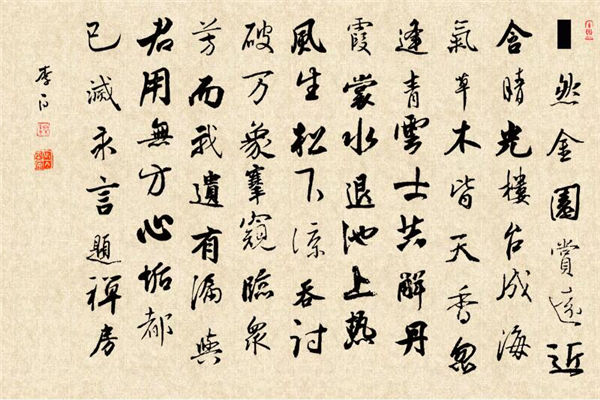 然金園賞遠近
含晴光樓台成海
氣草木皆天香忽
逢青雲士共解丹
霞裳水退池上熱
風生松下涼吞討
破万象搴窺臨眾
芳而我遺有漏與
君用無方心垢都
已滅永言題禪房
李白